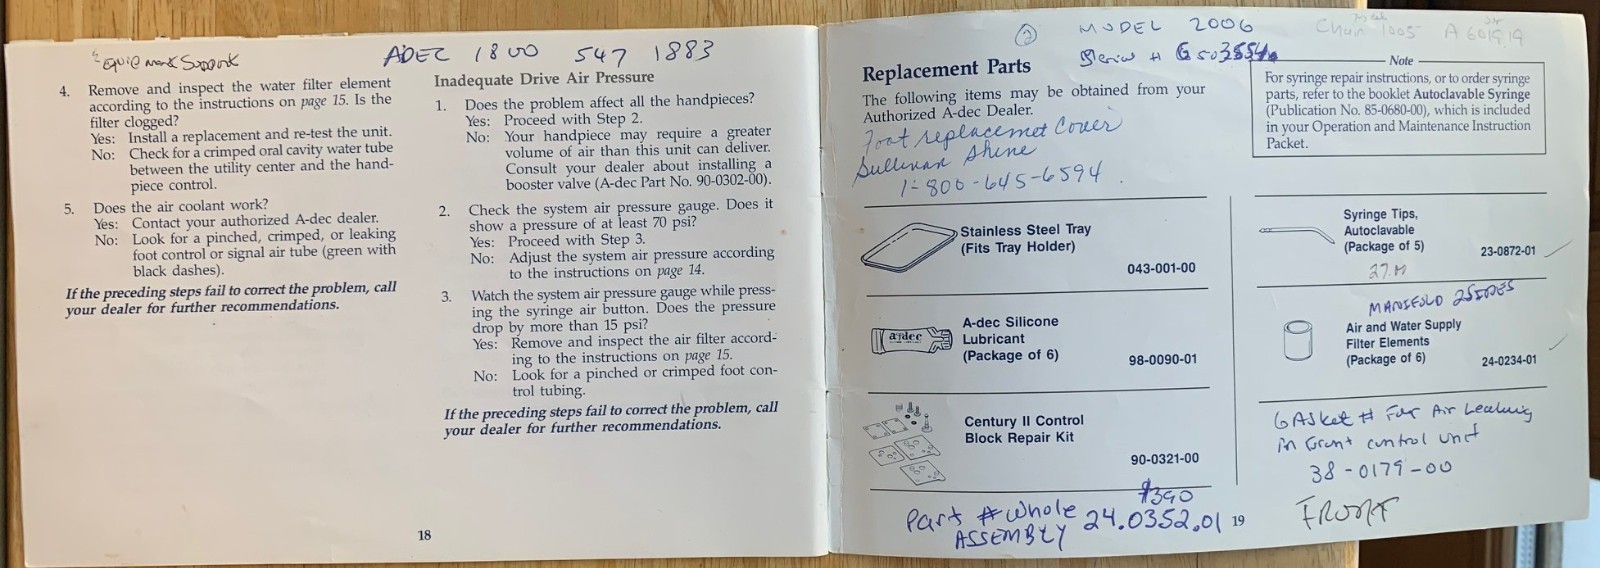 Equip ment Support
ADEC 1800 547 1883
4. Remove and inspect the water filter element
according to the instructions on page 15. Is the
filter clogged?
Yes: Install a replacement and re-test the unit.
No: Check for a crimped oral cavity water tube
between the utility center and the hand-
piece control.
5. Does the air coolant work?
Yes: Contact your authorized A-dec dealer.
No: Look for a pinched, crimped, or leaking
foot control or signal air tube (green with
black dashes).
If the preceding steps fail to correct the problem, call
your dealer for further recommendations.
Inadequate Drive Air Pressure
1. Does the problem affect all the handpieces?
Yes: Proceed with Step 2.
No: Your handpiece may require a greater
volume of air than this unit can deliver.
Consult your dealer about installing a
booster valve (A-dec Part No. 90-0302-00).
2. Check the system air pressure gauge. Does it
show a pressure of at least 70 psi?
Yes: Proceed with Step 3.
No: Adjust the system air pressure according
to the instructions on page 14.
3. Watch the system air pressure gauge while press-
ing the syringe air button. Does the pressure
drop by more than 15 psi?
Yes: Remove and inspect the air filter accord-
ing to the instructions on page 15.
No: Look for a pinched or crimped foot con-
trol tubing.
If the preceding steps fail to correct the problem, call
your dealer for further recommendations.
18
2 MODEL 2006
Serial #
Chair 1005 A
Replacement Parts
The following items may be obtained from your
Authorized A-dec Dealer.
Foot replacemet Cover
Sullivan Shine
1-800-645-6594
Note
For syringe repair instructions, or to order syringe
parts, refer to the booklet Autoclavable Syringe
(Publication No. 85-0680-00), which is included
in your Operation and Maintenance Instruction
Packet.
Stainless Steel Tray
(Fits Tray Holder)
043-001-00
a-dec
A-dec Silicone
Lubricant
(Package of 6)
98-0090-01
Century II Control
Block Repair Kit
90-0321-00
$390
Part # Whole 24.0352.01
ASSEMBLY
19
Syringe Tips,
Autoclavable
(Package of 5)
23-0872-01
MANIFOLD 2SIDES
Air and Water Supply
Filter Elements
(Package of 6)
24-0234-01
GASket # For Air Leaking
in front control unit
38-0179-00
FRONT